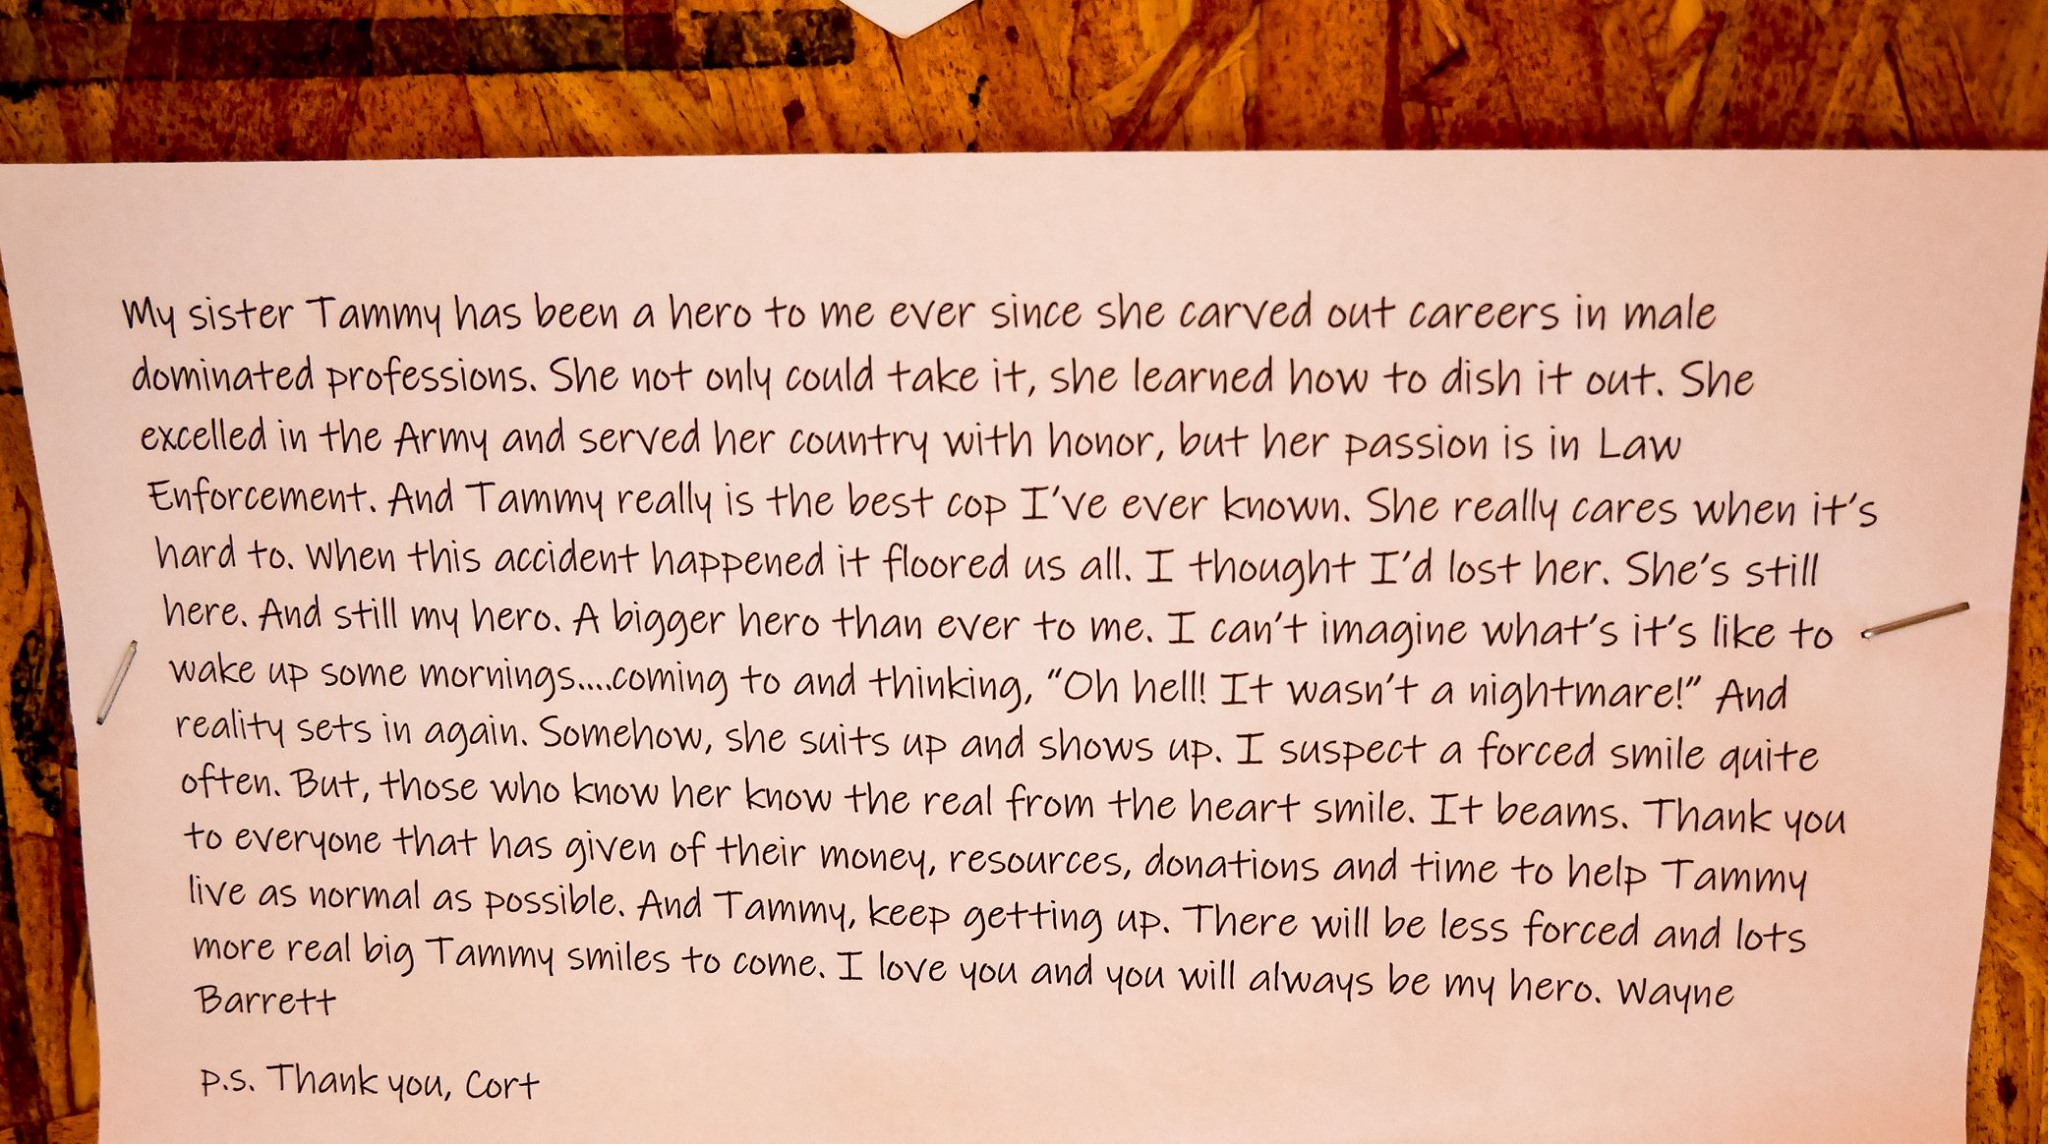 My sister Tammy has been a hero to me ever since she carved out careers in male
dominated professions. She not only could take it, she learned how to dish it out. She
excelled in the Army and served her country with honor, but her passion is in Law
Enforcement. And Tammy really is the best cop I've ever known. She really cares when it's
hard to. When this accident happened it floored us all. I thought I'd lost her. She's still
here. And still my hero. A bigger hero than ever to me. I can't imagine what's it's like to
wake up some mornings....coming to and thinking, "Oh hell! It wasn't a nightmare!" And
reality sets in again. Somehow, she suits up and shows up. I suspect a forced smile quite
often. But, those who know her know the real from the heart smile. It beams. Thank you
to everyone that has given of their money, resources, donations and time to help Tammy
live as normal as possible. And Tammy, keep getting up. There will be less forced and lots
more real big Tammy smiles to come. I love you and you will always be my hero. Wayne
Barrett
p.s. Thank you, Cort